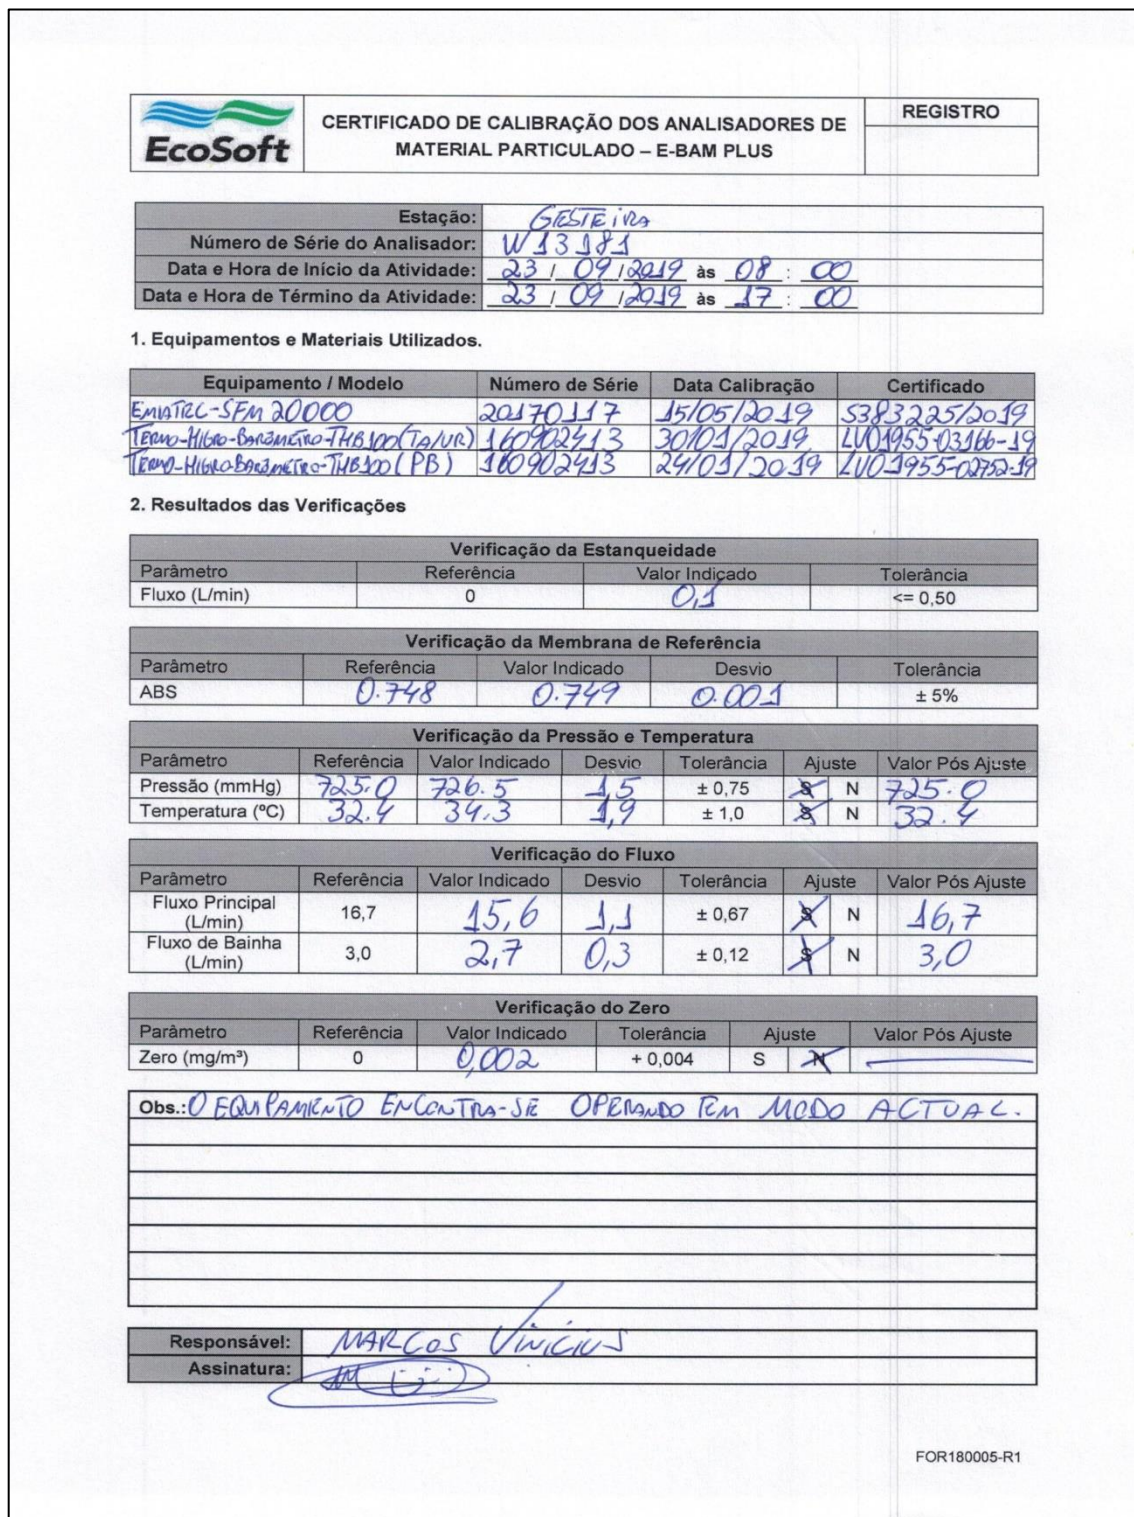 EcoSoft
CERTIFICADO DE CALIBRAÇÃO DOS ANALISADORES DE
MATERIAL PARTICULADO – E-BAM PLUS
REGISTRO
Estação: GESTEIRA
Número de Série do Analisador: W13181
Data e Hora de Início da Atividade: 23 / 09 / 2019 às 08 : 00
Data e Hora de Término da Atividade: 23 / 09 / 2019 às 17 : 00
1. Equipamentos e Materiais Utilizados.
Equipamento / Modelo Número de Série Data Calibração Certificado
SFM 20000 20170117 15/05/2019 S383225/2019
TERMO-HIGRO-BARÔMETRO-THB100 (TA/UR) 160902413 30/01/2019 LV01955-03166-19
TERMO-HIGRO-BARÔMETRO-THB100 (PB) 160902413 24/01/2019 LV01955-02752-19
2. Resultados das Verificações
Verificação da Estanqueidade
Parâmetro Referência Valor Indicado Tolerância
Fluxo (L/min) 0 0,1 <= 0,50
Verificação da Membrana de Referência
Parâmetro Referência Valor Indicado Desvio Tolerância
ABS 0.748 0.749 0.001 ± 5%
Verificação da Pressão e Temperatura
Parâmetro Referência Valor Indicado Desvio Tolerância Ajuste Valor Pós Ajuste
Pressão (mmHg) 725.0 726.5 1,5 ± 0,75 S N 725.0
Temperatura (ºC) 32.4 34.3 1,9 ± 1,0 S N 32.4
Verificação do Fluxo
Parâmetro Referência Valor Indicado Desvio Tolerância Ajuste Valor Pós Ajuste
Fluxo Principal
(L/min) 16,7 15,6 1,1 ± 0,67 S N 16,7
Fluxo de Bainha
(L/min) 3,0 2,7 0,3 ± 0,12 S N 3,0
Verificação do Zero
Parâmetro Referência Valor Indicado Tolerância Ajuste Valor Pós Ajuste
Zero (mg/m³) 0 0,002 + 0,004 S N
Obs.: O EQUIPAMENTO ENCONTRA-SE OPERANDO EM MODO ACTUAL.
Responsável: MARCOS VINICIUS
Assinatura:
FOR180005-R1